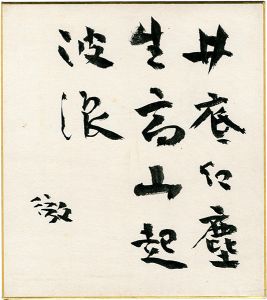 井底紅塵
生高山起
波浪
徹